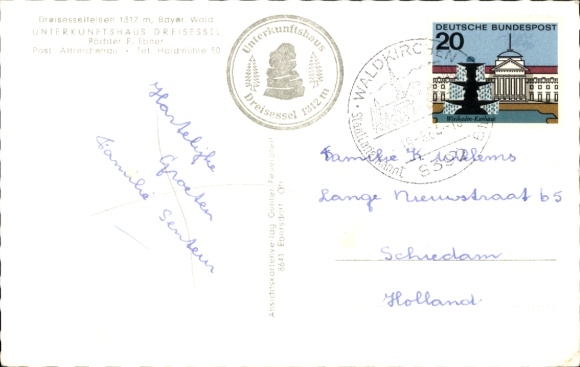 Dreisesselfelsen 1312 m, Bayer. Wald
UNTERKUNFTSHAUS DREISESSEL
Pächter P. Ebner
Post: Altreichenau · Tel. Haidmühle 50
Unterkunftshaus
Dreisessel 1312 m
WALDKIRCHEN
8392
DEUTSCHE BUNDESPOST
20
Wiesbaden-Kurhaus
Hartelijke
Groeten
Familie Senteur
Ansichtskartenverlag Günter
8641 Ebersdorf
Familie K Willems
Lange Nieuwstraat 65
Schiedam
Holland